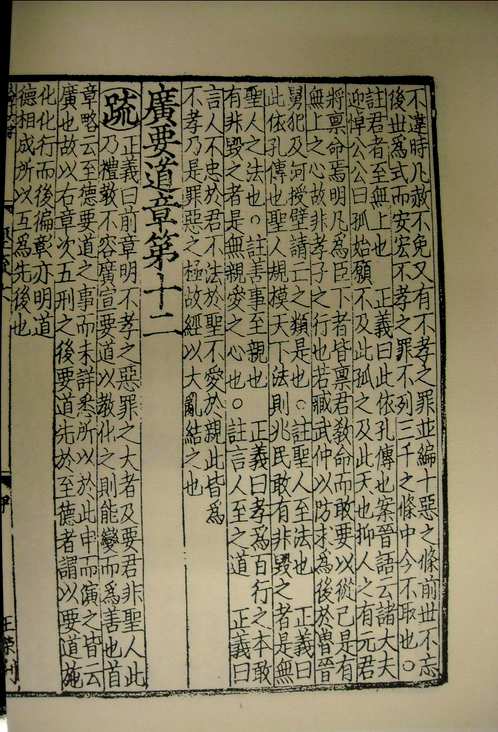 不違時凡赦不免又有不孝之罪並編十惡之條前世不忘
後世為式而安宏不孝之罪不列三千之條中今不取也○
註君者至無上也　正義曰此依孔傳也案晉語云諸大夫
迎悼公公曰孤始願不及此孤之及此天也抑人之有元君
將稟命焉明凡為臣下者皆稟君敎命而敢要以從己是有
無上之心故非孝子之行也若臧武仲以防求為後於魯晉
舅犯及河授璧請亡之類是也○註聖人至法也　正義曰
此依孔傳也聖人規模天下法則兆民敢有非毀之者是無
聖人之法也○註善事至親也　正義曰孝為百行之本敢
有非毀之者是無親愛之心也○註言人至之道　正義曰
言人不忠於君不法於聖不愛於親此皆為
不孝乃是罪惡之極故經以大亂結之也
廣要道章第十二
疏　正義曰前章明不孝之惡罪之大者及要君非聖人此
乃禮敎不容廣宣要道以敎化之則能變而為善也首
章略云至德要道之事而未詳悉所以於此申而演之皆云
廣也故以右章次五刑之後要道先於至德者謂以要道施
化化行而後徧彰亦明道
德相成所以互為先後也